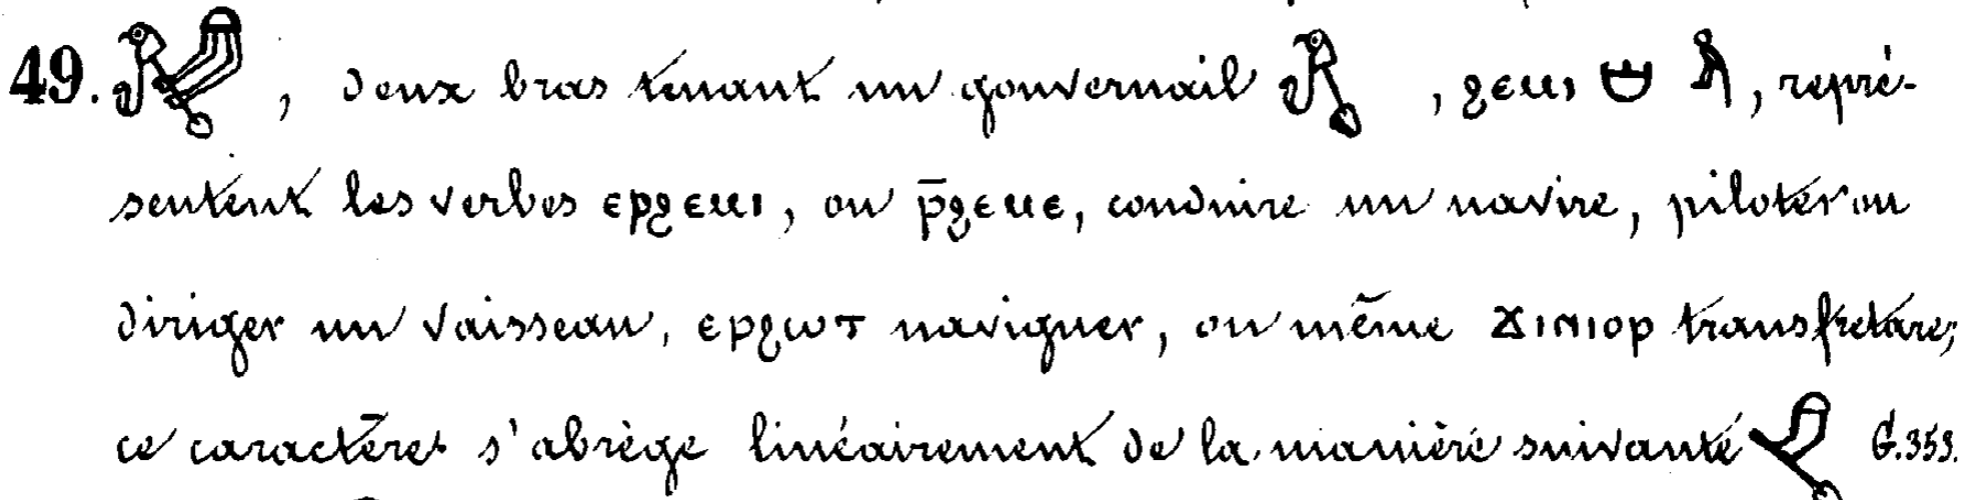 49. , deux bras tenant un gouvernail , ϩⲉⲙⲓ , repré-
sentent les verbes ⲉⲣϩⲉⲙⲓ, ou ⲣ̄ϩⲉⲙⲉ, conduire un navire, piloter ou
diriger un vaisseau, ⲉⲣϩⲱⲧ naviguer, ou même ϫⲓⲛⲓⲟⲣ transfretare;
ce caractère s'abrège linéairement de la manière suivante G. 353.